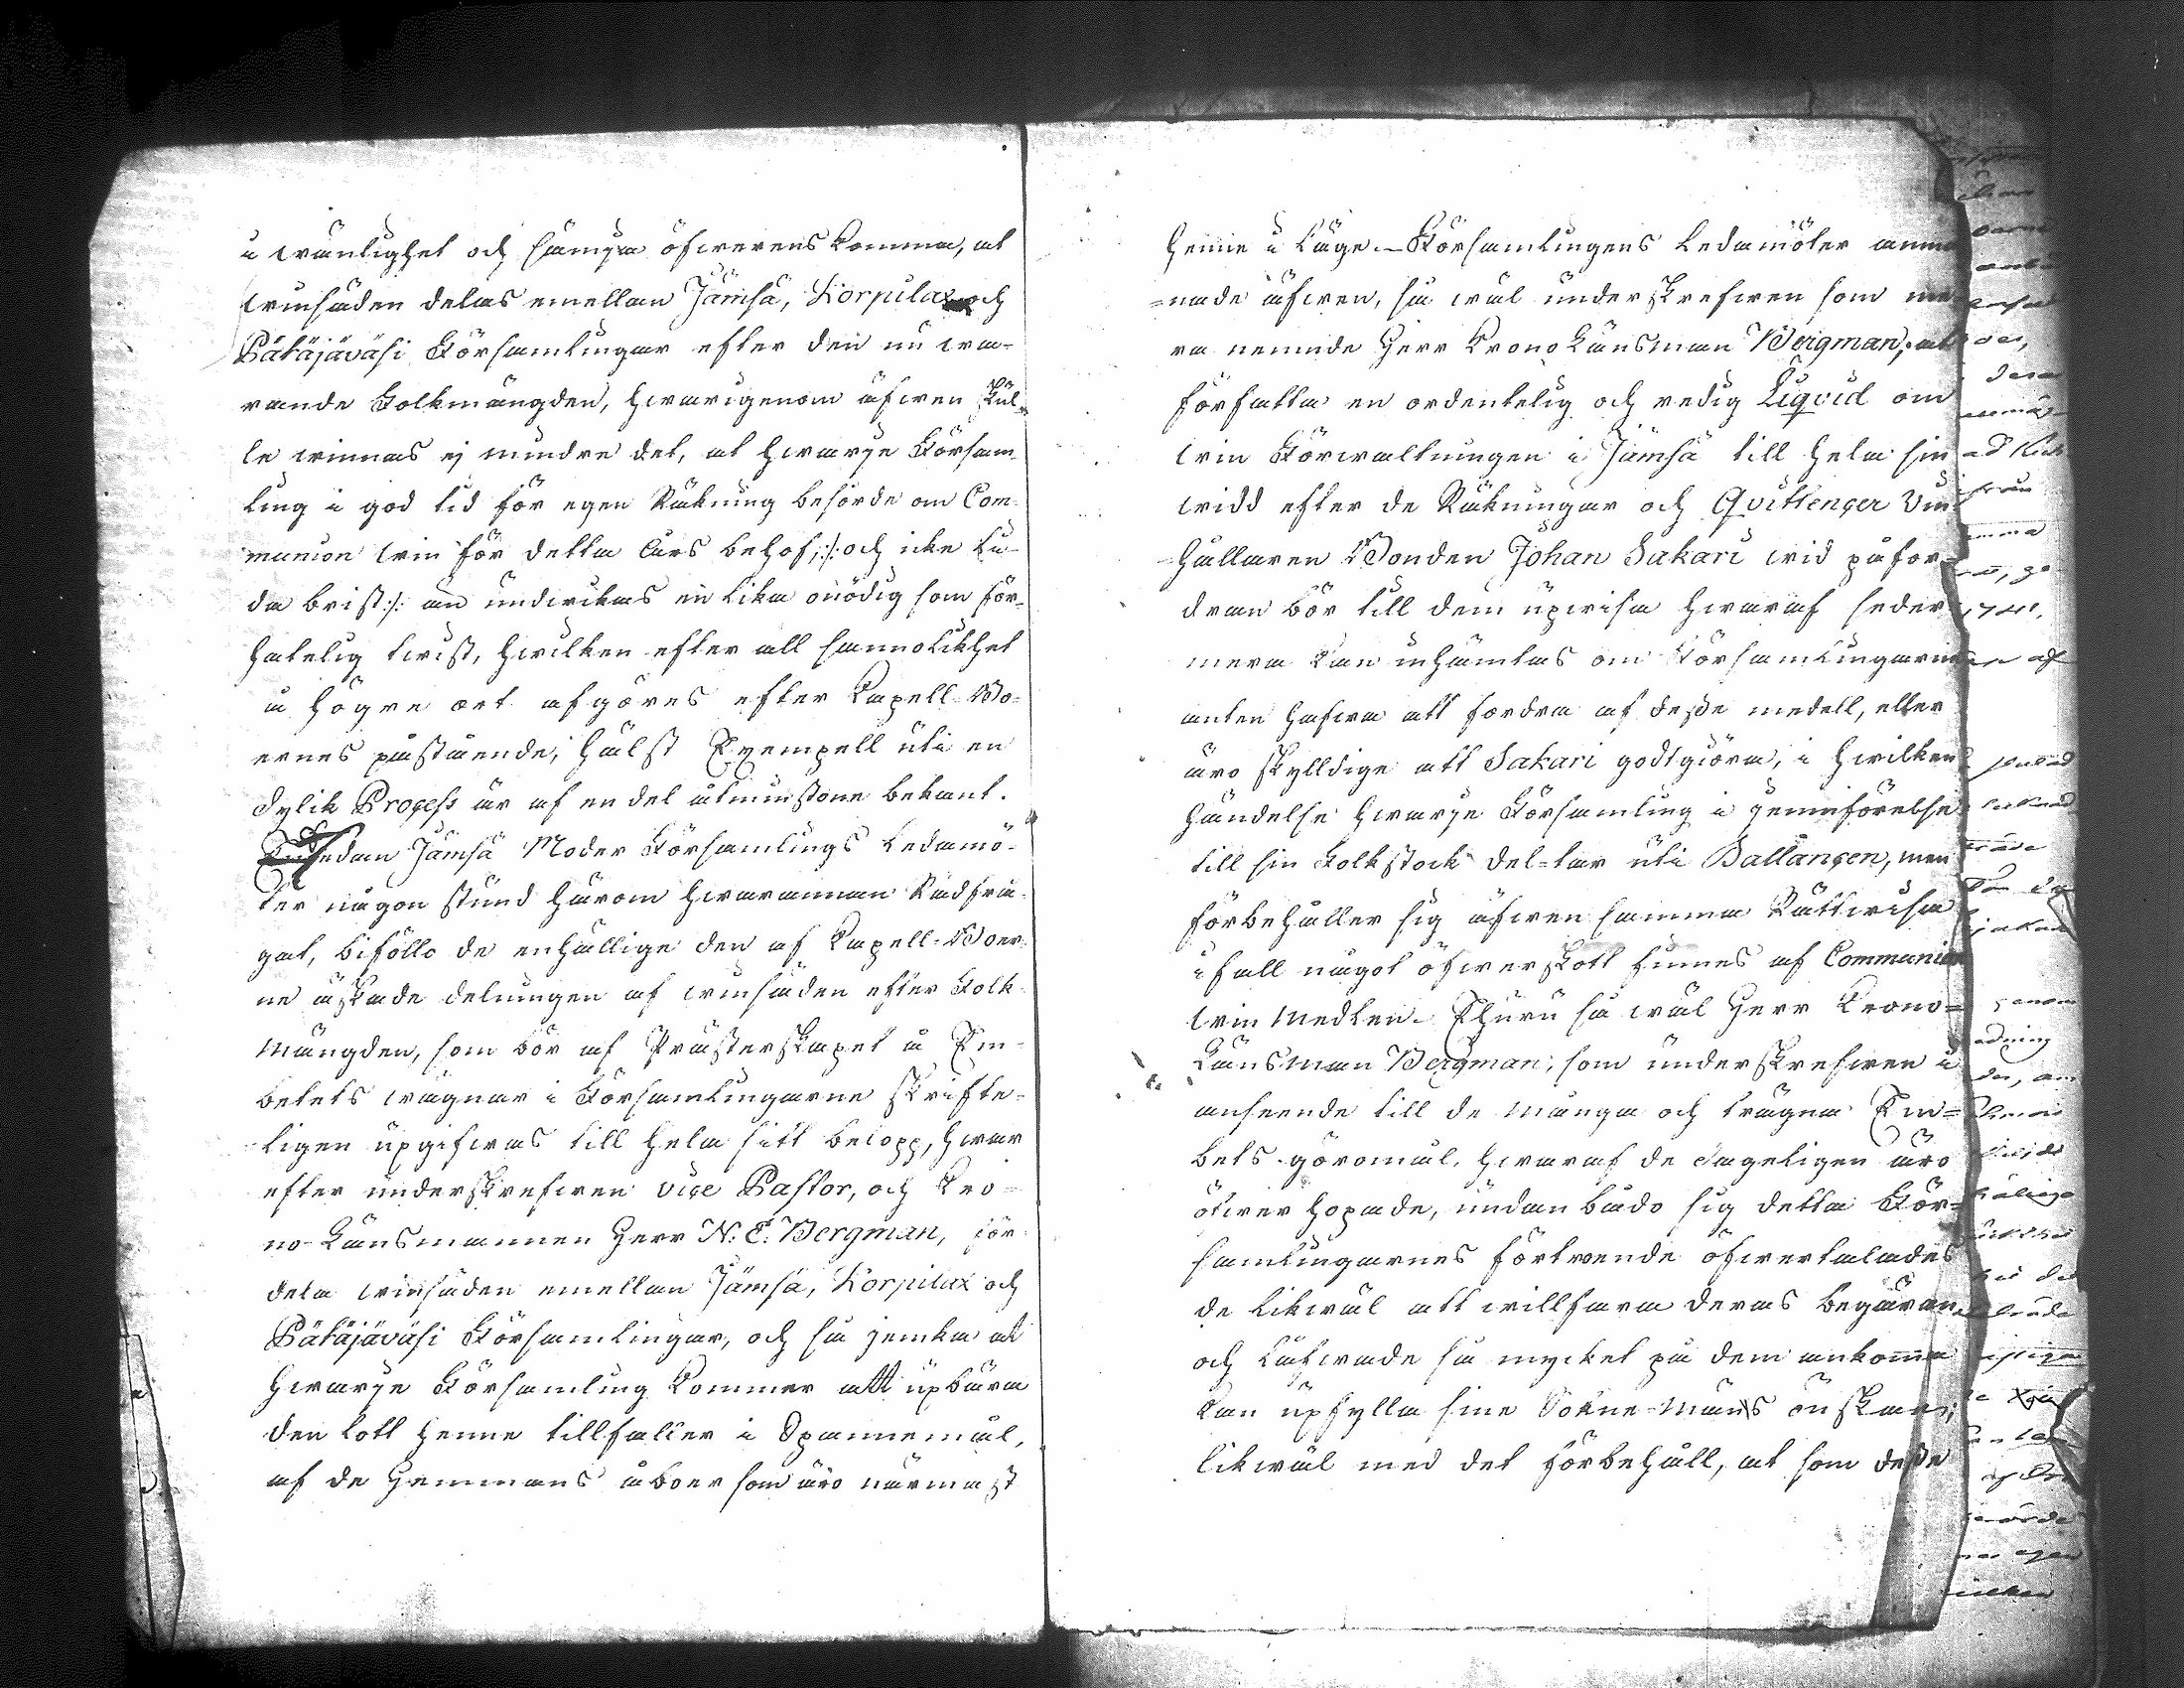 i wänlighet och sämja öfwerens komma, at
winsäden delas emellan Jämsä, Korpilax och
Pätäjäväsi Församlingar efter den nu wa-
rande Folkmängden, hwarigenom äfwen skul-
le winnas ej mindre det, at hwarje Försam-
ling i god tid för egen Räkning besörde om Com-
munion win för detta Års behof, :/: och icke li-
da brist :/: än undvikas en lika onödig som för-
hatelig twist, hwilken efter all sannolikhet
å högre ort afgöres efter Capell-Bo-
ernes påstående, hälst Exempell uti en
dylik Process är af en del åtminstone bekant.
Sedan Jämsä Moder Församlings Ledamö-
ter någon stund härom hwarannan Rådfrå-
gat, biföllo de enhällige den af Capell-Boer-
ne äskade delningen af winsäden efter Folk-
mängden, som bör af Prästerskapet å Em-
betets wägnar i Församlingarne skrifte-
ligen upgifwas till hela sitt belopp, hwar
efter underskrefwen Vice Pastor, och Cro-
no-Länsmannen Herr N: E: Bergman, för-
dela winsäden emellan Jämsä, Korpilax och
Pätäjäväsi Församlingar, och så jemka at
hwarje Församling kommer att upbära
den lott henne tillfaller i Spannemål,
af de Hemmans åboer som äro närmast
henne i Läge. Församlingens Ledamöter anmo-
nade äfwen, så wäl underskrefwen som me
ra nemnde Herr Crono Länsman Bergman, at
författa en ordentelig och redig Liqvid om
win Förwaltningen i Jämsä till hela sin
widd efter de Räkningar och Qvittencer Vin-
hållaren Bonden Johan Sakari wid påfor-
dran bör till dem upwisa hwaraf seder
mera kan inhämtas om Församlingarne
anten hafwa att fordra af desse medell, eller
äro skylldige att Sakari godtgiöra, i hwilken
händelse hwarje Församling i jemnförelse
till sin Folkstock del-tar uti Ballancen, men
förbehåller sig äfwen samma Rättwisa
ifall något öfwerskott finnes af Communion
win medlen. Ehuru så wäl Herr Crono-
Länsman Bergman, som underskrefwen i
anseende till de många och trägna Em-
bets göromål, hwaraf de dageligen äro
öfwer hopade, undan bådo sig detta För-
samlingarnes förtroende öfwertalades
de likwäl att willfara deras begäran
och Låfwade så mycket på dem ankomma
kan upfylla sine Sokne-Mäns önskan;
likwäl med det förbehåll, at som desse